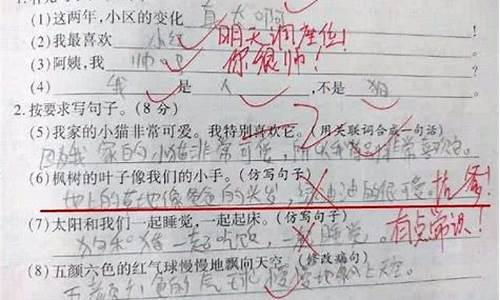 (1)这两年,小区的变化 真大啊
(2)我最喜欢 小红 明天调座位!
(3)阿姨,我 帅吧 你很帅!
(4) 我 是 人 ,不是 狗
2.按要求写句子。(8 分)
(5)我家的小猫非常可爱。我特别喜欢它。(用关联词合成一句话)
因为我家的小猫非常可爱,所以我特别非常喜欢它。
(6)枫树的叶子像我们的小手。(仿写句子)
地上的草地像爸爸的头发, 的很可爱。抗爹!
(7)太阳和我们一起睡觉,一起起床。(仿写句子)
狗和猪一起吃饭,一起睡觉。 有点常识!
(8)五颜六色的红气球慢慢地飘向天空。(修改病句)
五颜六色的气球慢慢地飘上天空。